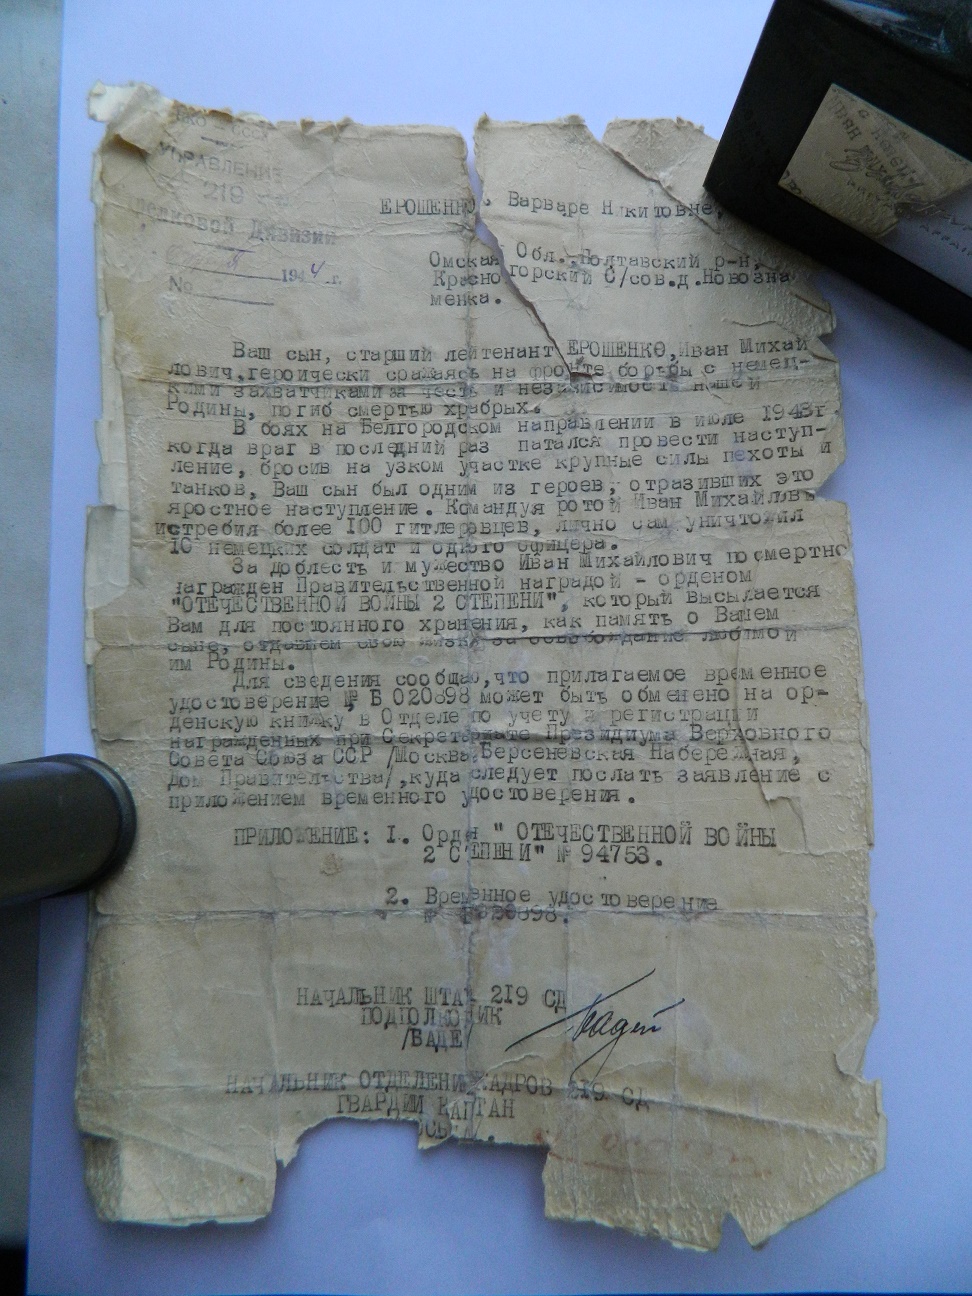 НКО – СССР
УПРАВЛЕНИЕ
219
Дивизии
194 4 г.
№
ЕРОШЕНКО, Варваре Никитовне,
Омская Обл., Полтавский р-н,
Красногорский С/сов.д.Новозна
менка.
Ваш сын, старший лейтенант ЕРОШЕНКО,Иван Михай
лович,героически сражаясь на фронте борьбы с немец-
кими захватчиками за честь и независимость нашей
Родины, погиб смертью храбрых.
В боях на Белгородском направлении в июле 1943г.
когда враг в последний раз патался провести наступ-
ление, бросив на узком участке крупные силы пехоты и
танков, Ваш сын был одним из героев, отразивших это
яростное наступление. Командуя ротой Иван Михайлов
истребил более 100 гитлеравцев, лично сам уничтожил
10 немецких солдат и одного офицера.
За доблесть и мужество Иван Михайлович посмертно
награжден Правительственной наградой – орденом
"ОТЕЧЕСТВЕННОЙ ВОЙНЫ 2 СТЕПЕНИ", который высылается
Вам для постоянного хранения, как память о Вашем
сыне, отдавшем свою жизнь за освобождение любимой
им Родины.
Для сведения сообщаю,что прилагаемое временное
удостоверение № Б 020898 может быть обменено на ор-
денскую книжку в Отделе по учету и регистрации
награжденных при Секретариате Президиума Верховного
Совета Союза ССР /Москва,Берсеневская Набережная,
Дом Правительства/,куда следует послать заявление с
приложением временного удостоверения.
ПРИЛОЖЕНИЕ: I. Орден " ОТЕЧЕСТВЕННОЙ ВОЙНЫ
2 СТЕПЕНИ" № 94753.
2. Временное удостоверение
№ Б 020898.
НАЧАЛЬНИК ШТАБА 219 СД
ПОДПОЛКОВНИК
/БАДЕ
НАЧАЛЬНИК ОТДЕЛЕНИЯ КАДРОВ 219 СД
ГВАРДИИ КАПИТАН